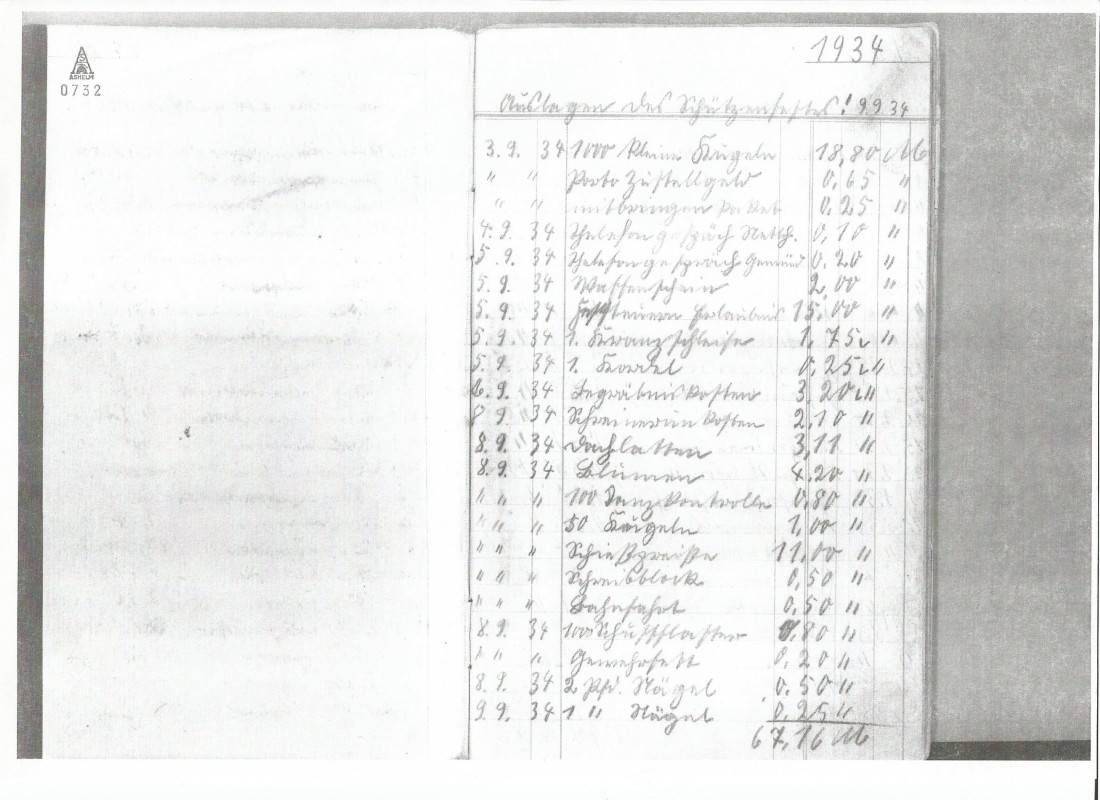 ASHELM
0732
1934
Auslagen des Schützenfestes! 9.9.34
3.9. 34 1000 kleine Kugeln 18,80 M
" " Porto Zustellgeld 0,65 "
" " mitbringen Paket 0,25 "
4.9. 34 Thelefon gespräch Netth. 0,10 "
5.9. 34 Thelefon gespräch Gemünd 0.20 "
5.9. 34 Waffenschein 2,00 "
5.9. 34 Erlaubnis 15,00 "
5.9. 34 1. Kranzschleife 1.75 "
5.9. 34 1. Kordel 0,25 "
6.9. 34 Begräbniskosten 3.20 "
8.9. 34 Schreinerunkosten 2,10 "
8.9. 34 Dachlatten 3,11 "
8.9. 34 Blumen 4.20 "
" " " 100 Tanzkontrolle 0,80 "
" " " 50 Kugeln 1,00 "
" " " Schießpreiße 11,00 "
" " " Schreibblock 0,50 "
" " " Bahnfahrt 0.50 "
8.9. 34 100 Schußpflaster 0,80 "
" " " Gewehrfett 0.20 "
8.9. 34 2 Pfd. Nägel 0.50 "
9.9. 34 1 " Nägel 0.25 "
67,16 M